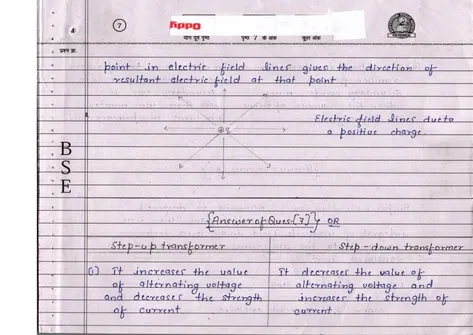 4
7
पृष्ठ 7 के अंक
कुल अंक
प्रश्न क्र.
point in electric field lines gives the direction of
resultant electric field at that point
Electric field lines due to
a positive charge.
B
S
E
{Answer of Ques. [7]} OR
Step-up transformer
Step-down transformer
(i) It increases the value
of alternating voltage
and decreases the strength
of current
It decreases the value of
alternating voltage and
increases the strength of
current.